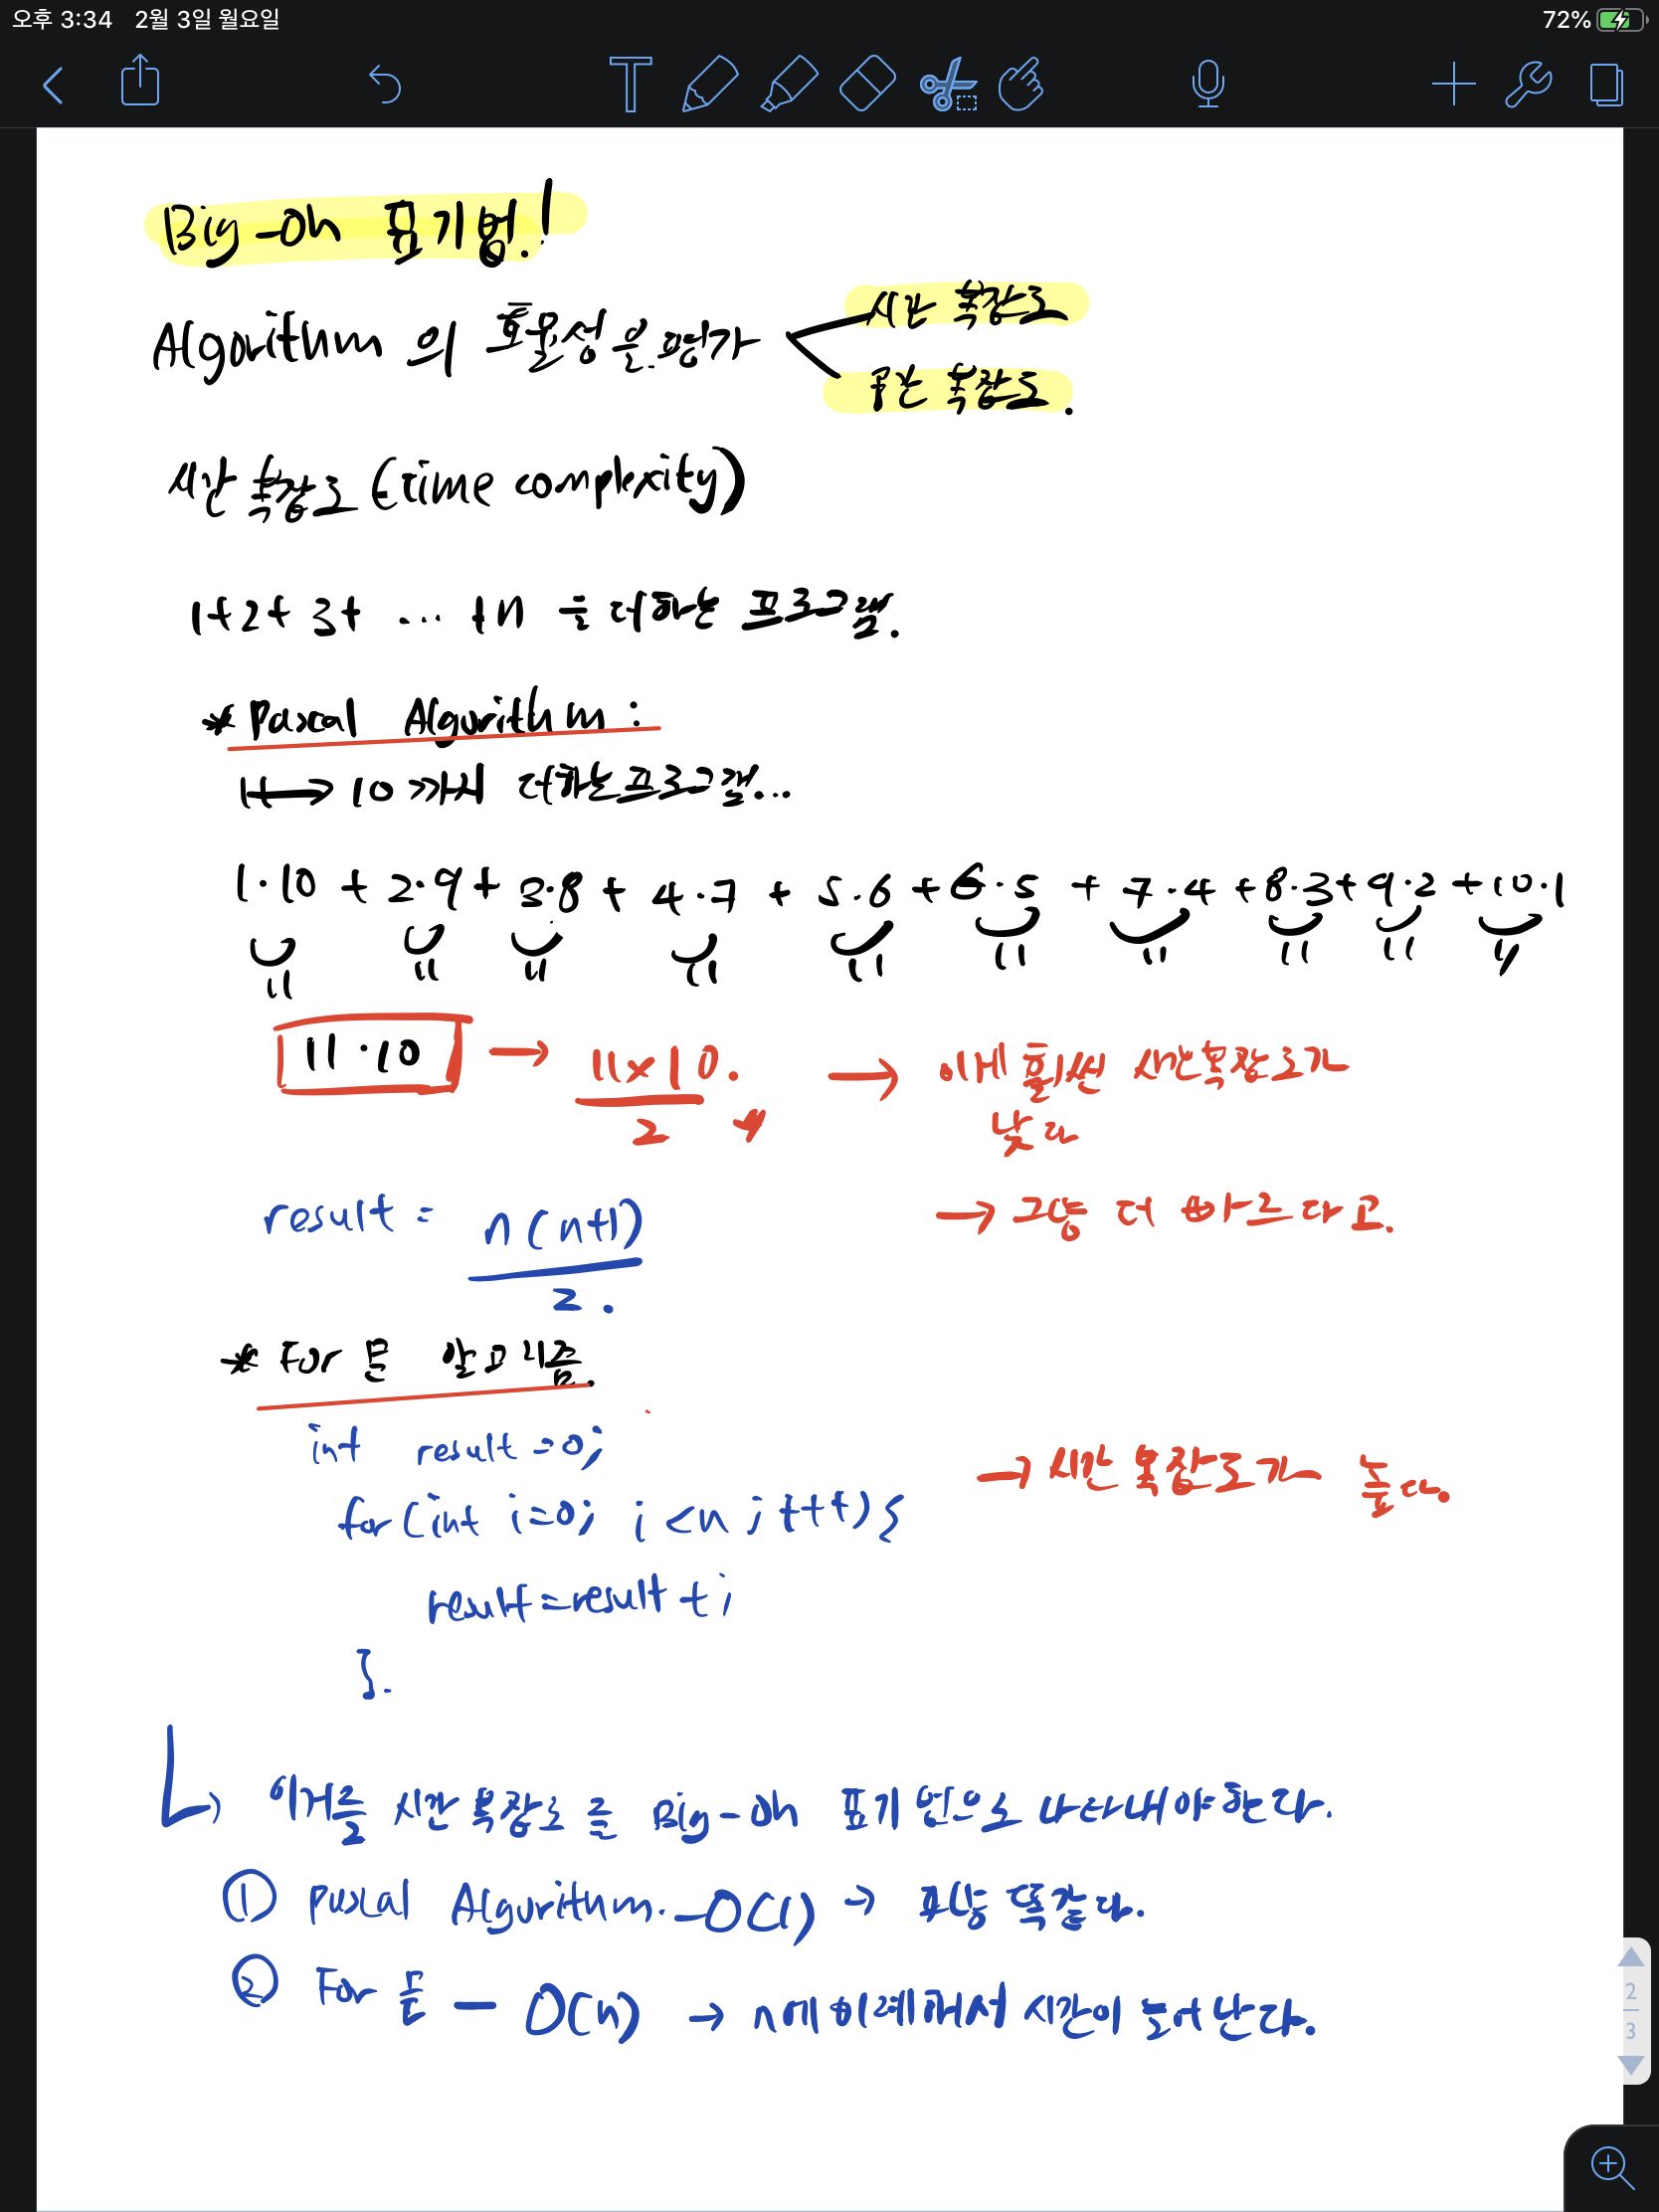 오후 3:34 2월 3일 월요일 72%
Big-Oh 표기법!
Algorithm 의 효율성은 평가
시간 복잡도
공간 복잡도.
시간 복잡도 (time complexity)
1+2+3+ ... +n 을 더하는 프로그램.
* Pascal Algorithm :
1+→ 10까지 더하는 프로그램...
1·10 + 2·9 + 3·8 + 4·7 + 5·6 + 6·5 + 7·4 + 8·3 + 9·2 + 10·1
11 11 11 11 11 11 11 11 11 11
11·10 → 11×10. → 이게 훨씬 시간복잡도가
2 낮다
result = n(n+1) → 그냥 더 빠르다고.
2.
* For 문 알고리즘.
int result=0;
→ 시간 복잡도가 높다.
for(int i=0; i<n; i++){
result=result+i
}.
이거를 시간 복잡도를 Big-Oh 표기법으로 나타내야한다.
① Pascal Algorithm. - O(1) → 똑같다.
② For 문 - O(n) → n에 비례해서 시간이 늘어난다.
2
3